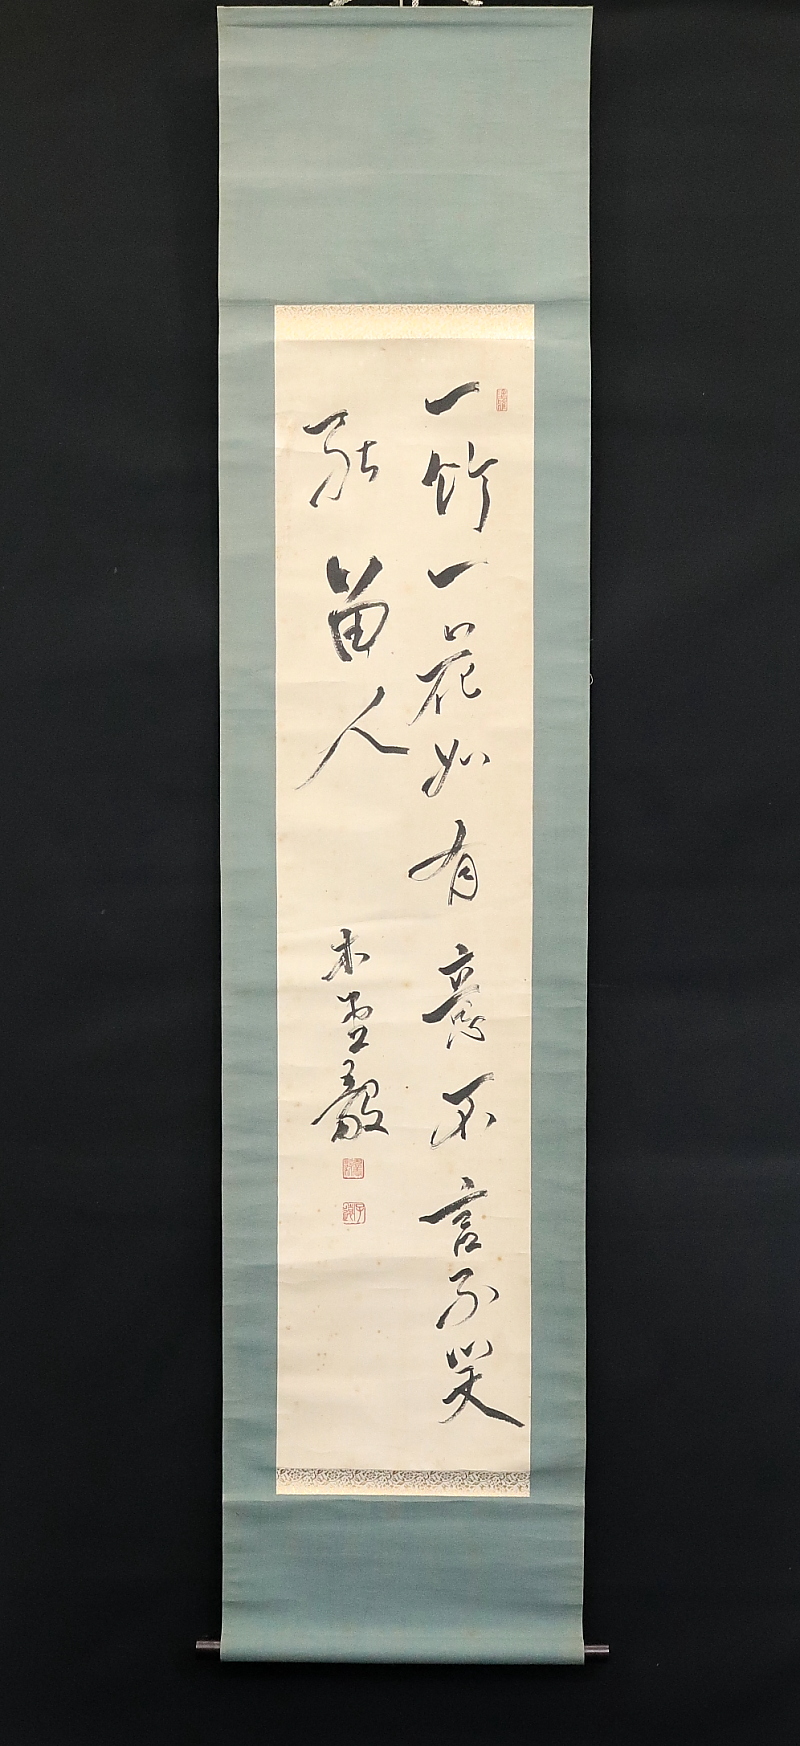 一竹一花如有意不言不笑
能留人
木堂毅